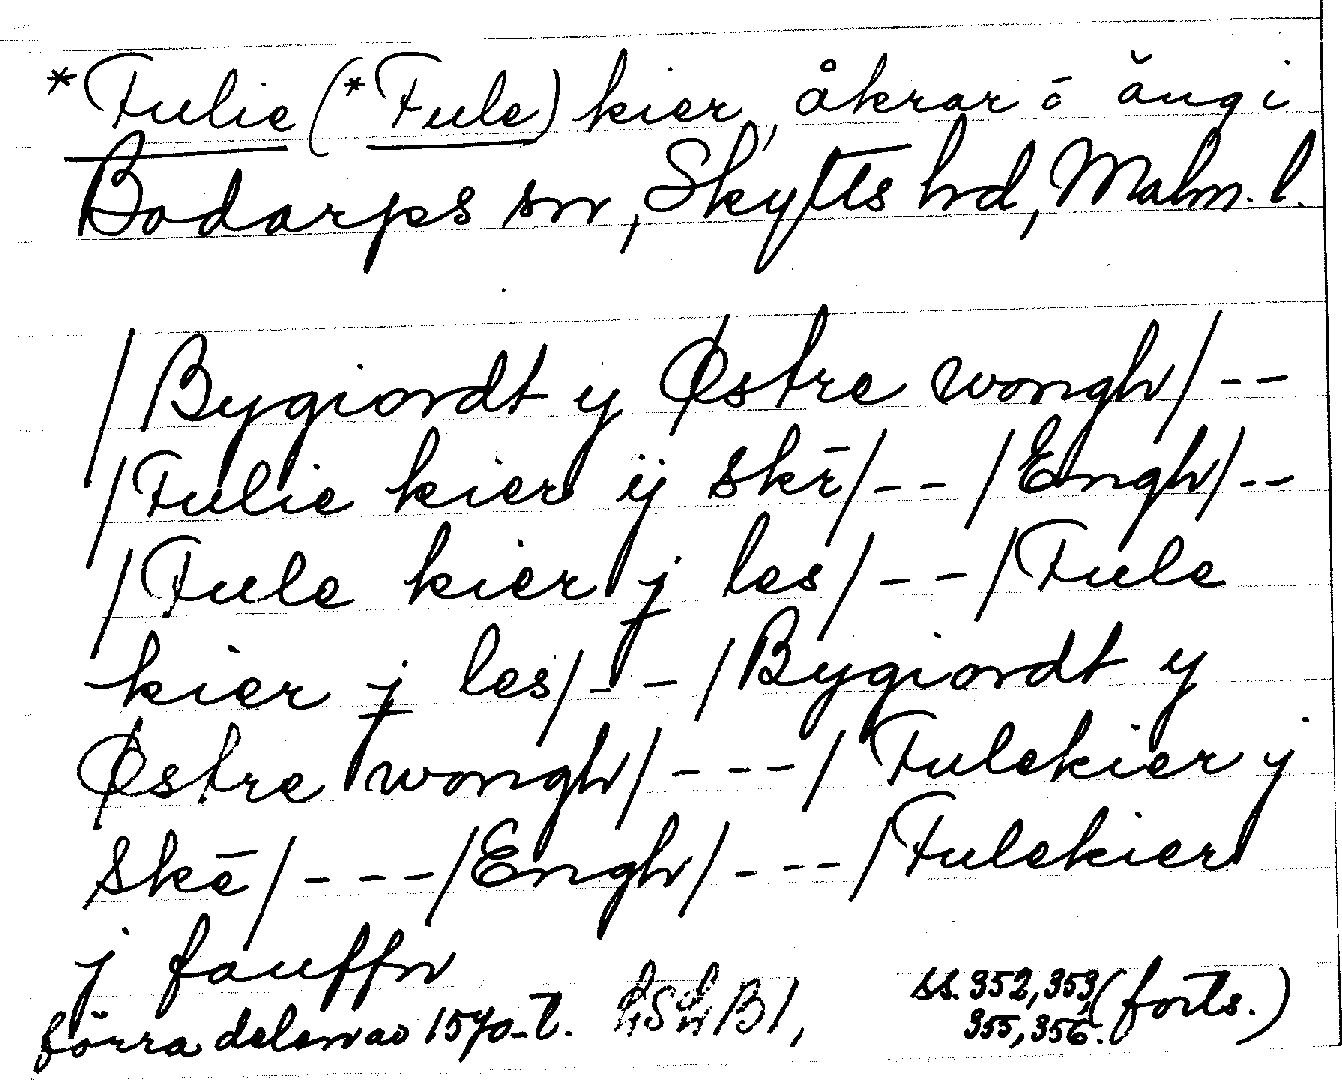 *Fulie (*Fule) kier, åkrar o äng i
Bodarps sn, Skytts hd, Malm. l.
/Bygiordt y Østre wongh/--
/Fulie kier ij skē/--/Engh/--
/Fule kier j les/--/Fule
kier j les/--/Bygiordt y
Østre wongh/---/Fulekier j
skē/---/Engh/---/Fulekier
j fauffn
förra delen av 1570-t. LSLB1, ss. 352, 353, (forts.)
355, 356.